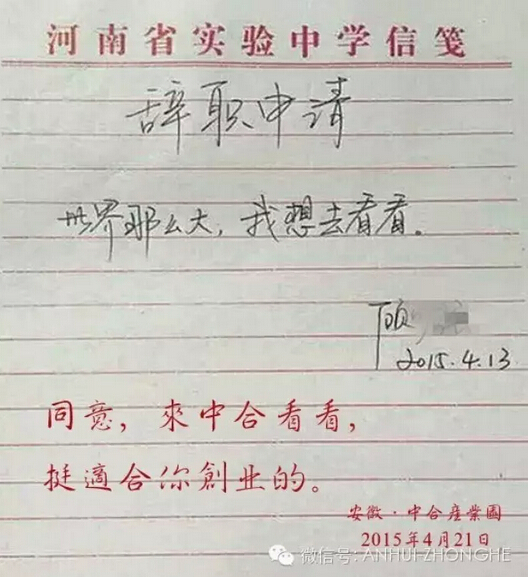 河南省实验中学信笺
辞职申请
世界那么大，我想去看看。
顾
2015.4.13
同意，來中合看看，
挺適合你創业的。
安徽·中合産業園
2015年4月21日
微信号: ANHUI-ZHONGHE